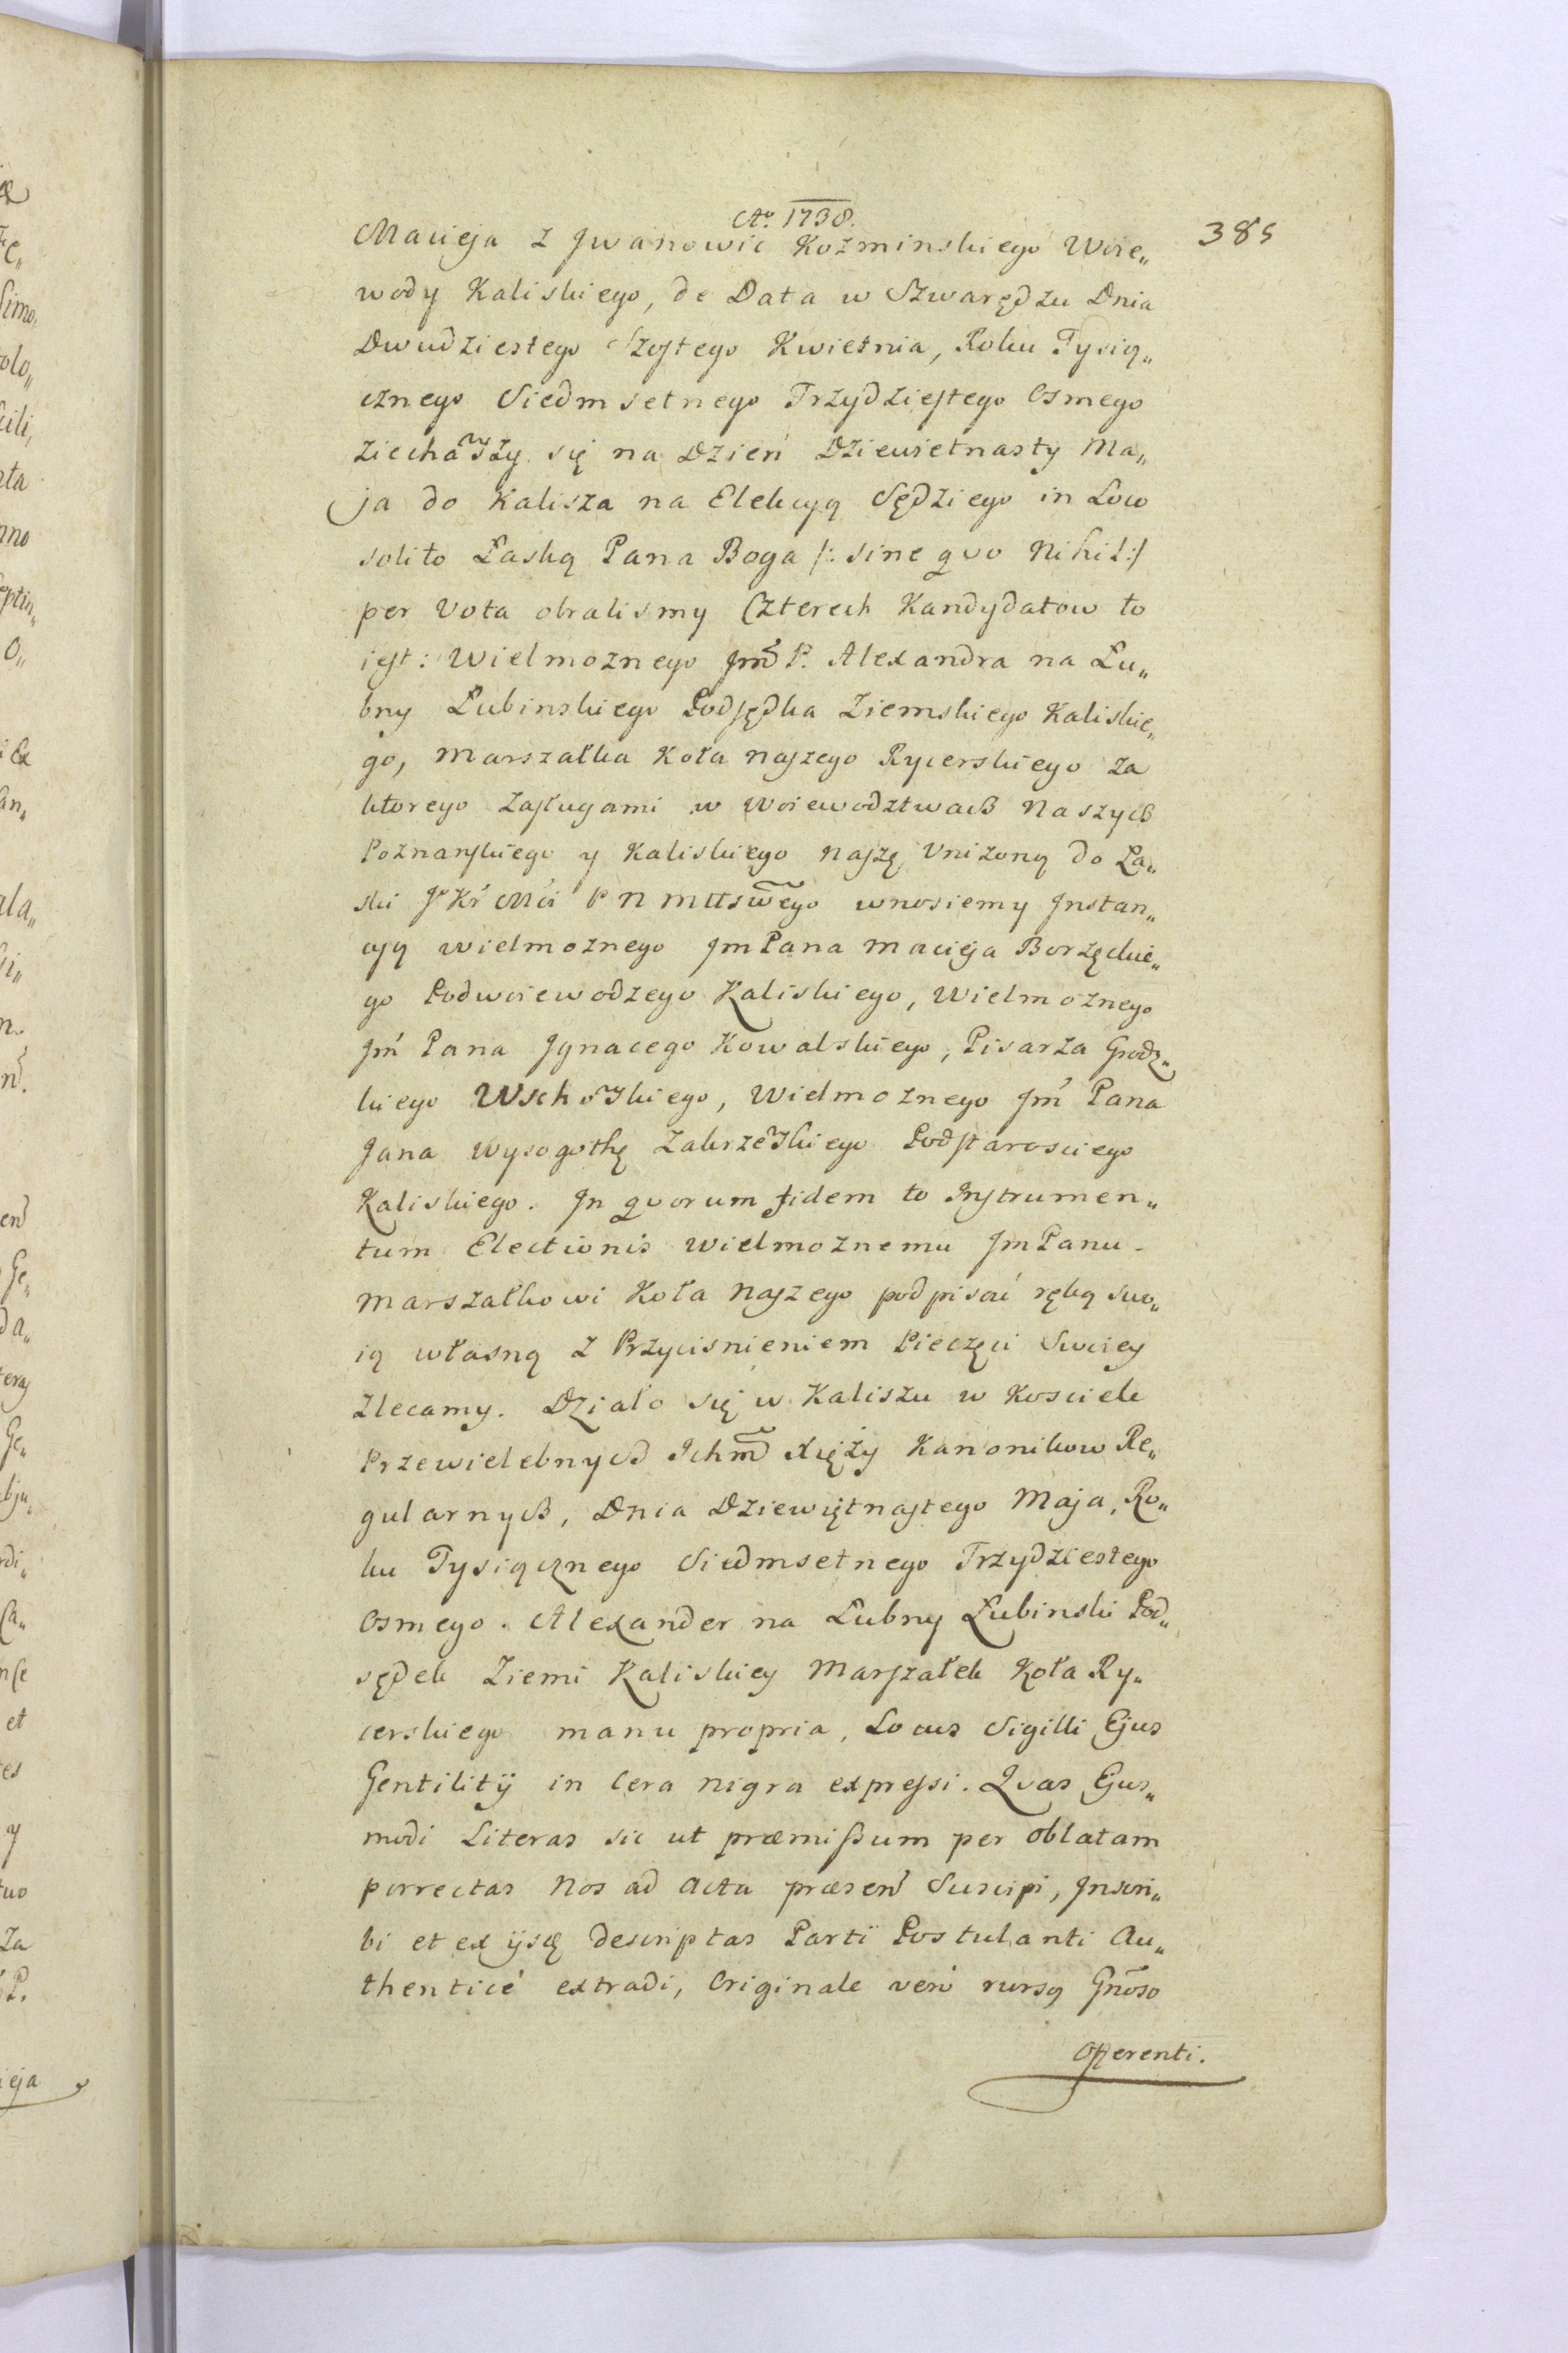 Ao. 1738.
385
Macieja z Jwanowic Kozminskiego Woie„
wody Kaliskiego, de Data w Szwarędzu Dnia
Dwudziestego Szostego Kwietnia, Roku Tysią„
cznego Siedmsetnego Trzydziestego Osmego
ziechawszy się na Dzień Dziewietnasty Ma„
ja do Kalisza na Elekcyą Sędziego in Loco
solito Łaską Pana Boga /: sine qvo Nihil :/
per Vota obralismy Czterech Kandydatow to
iest: Wielmoznego Jmć P. Alexandra na Łu„
bny Łubinskiego Podsędka Ziemskiego Kaliskie„
go, Marszałka Koła naszego Rycerskiego za
ktorego zasługami w Woiewodztwach Naszych
Poznanskiego y Kaliskiego naszę Unizoną do Ła„
ski JKr Mci P N mttswego wnosiemy Jnstan„
cyą Wielmoznego Jm Pana Macieja Borzęckie„
go Podwoiewodzego Kaliskiego, Wielmoznego
Jm Pana Jgnacego Kowalskiego, Pisarza Grodz„
kiego Wschowskiego, Wielmoznego Jm Pana
Jana Wysogothę Zakrzewskiego Podstarosciego
Kaliskiego. Jn qvorum fidem to Jnstrumen„
tum Electionis Wielmoznemu Jm Panu
Marszałkowi Koła Naszego podpisać ręką swo„
ią własną z Przycisnieniem Pieczęci Swoiey
zlecamy. Działo się w Kaliszu w Kosciele
Przewielebnych Ichmć Xięży Kanonikow Re„
gularnych, Dnia Dziewiętnastego Maja, Ro„
ku Tysiącznego Siedmsetnego Trzydziestego
Osmego. Alexander na Łubny Łubinski Pod„
sędek Ziemi Kaliskiey Marszałek Koła Ry„
cerskiego manu propria, Locus Sigilli Ejus
Gentilitij in Cera nigra expressi. Qvas Ejus„
modi Literas sic ut præmissum per oblatam
porrectas Nos ad Acta præsen Suscipi, Jnscri„
bi et ex ijsq descriptas Parti Postulanti Au„
thenticè extradi, Originale verò rursq Gnoso
Offerenti.